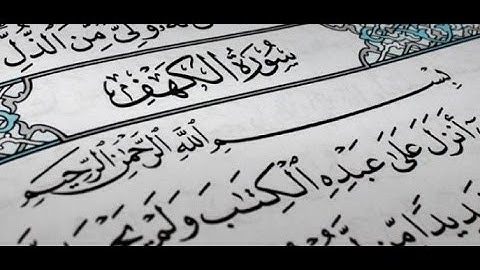 وَلِىٌّ مِّنَ ٱلذُّلِّ
سُورَةُ ٱلْكَهْفِ
بِسْمِ ٱللَّهِ ٱلرَّحْمَٰنِ ٱلرَّحِيمِ
أَنزَلَ عَلَىٰ عَبْدِهِ ٱلْكِتَٰبَ وَلَمْ